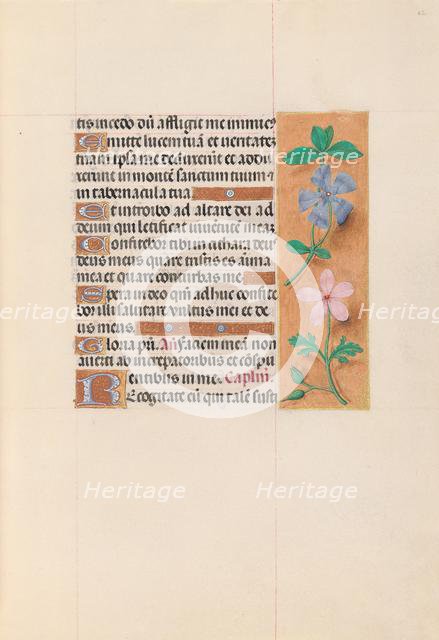 tis incedo dū affligit me inimic9
Emitte lucem tuā et veritatē
tuam ipsa me deduxerūt et addu
xerunt in montē sanctum tuum et
in tabernacula tua
Et introibo ad altare dei ad
deum qui letificat iuvētutē meā
Confitebor tibi in cithara deus
deus meus quare tristis es aīma
mea et quare conturbas me
Spera in deo qm̄ adhuc confite
bor illi salutare vultus mei et de
us meus
Gloria pr̄i. Añ Faciem meam non
averti ab increpacionibus et cōspu
entibus in me. Caplm̄
Recogitate eū qui talē susti
Heritage
Heritage
Heritage
Heritage
Heritage
Heritage